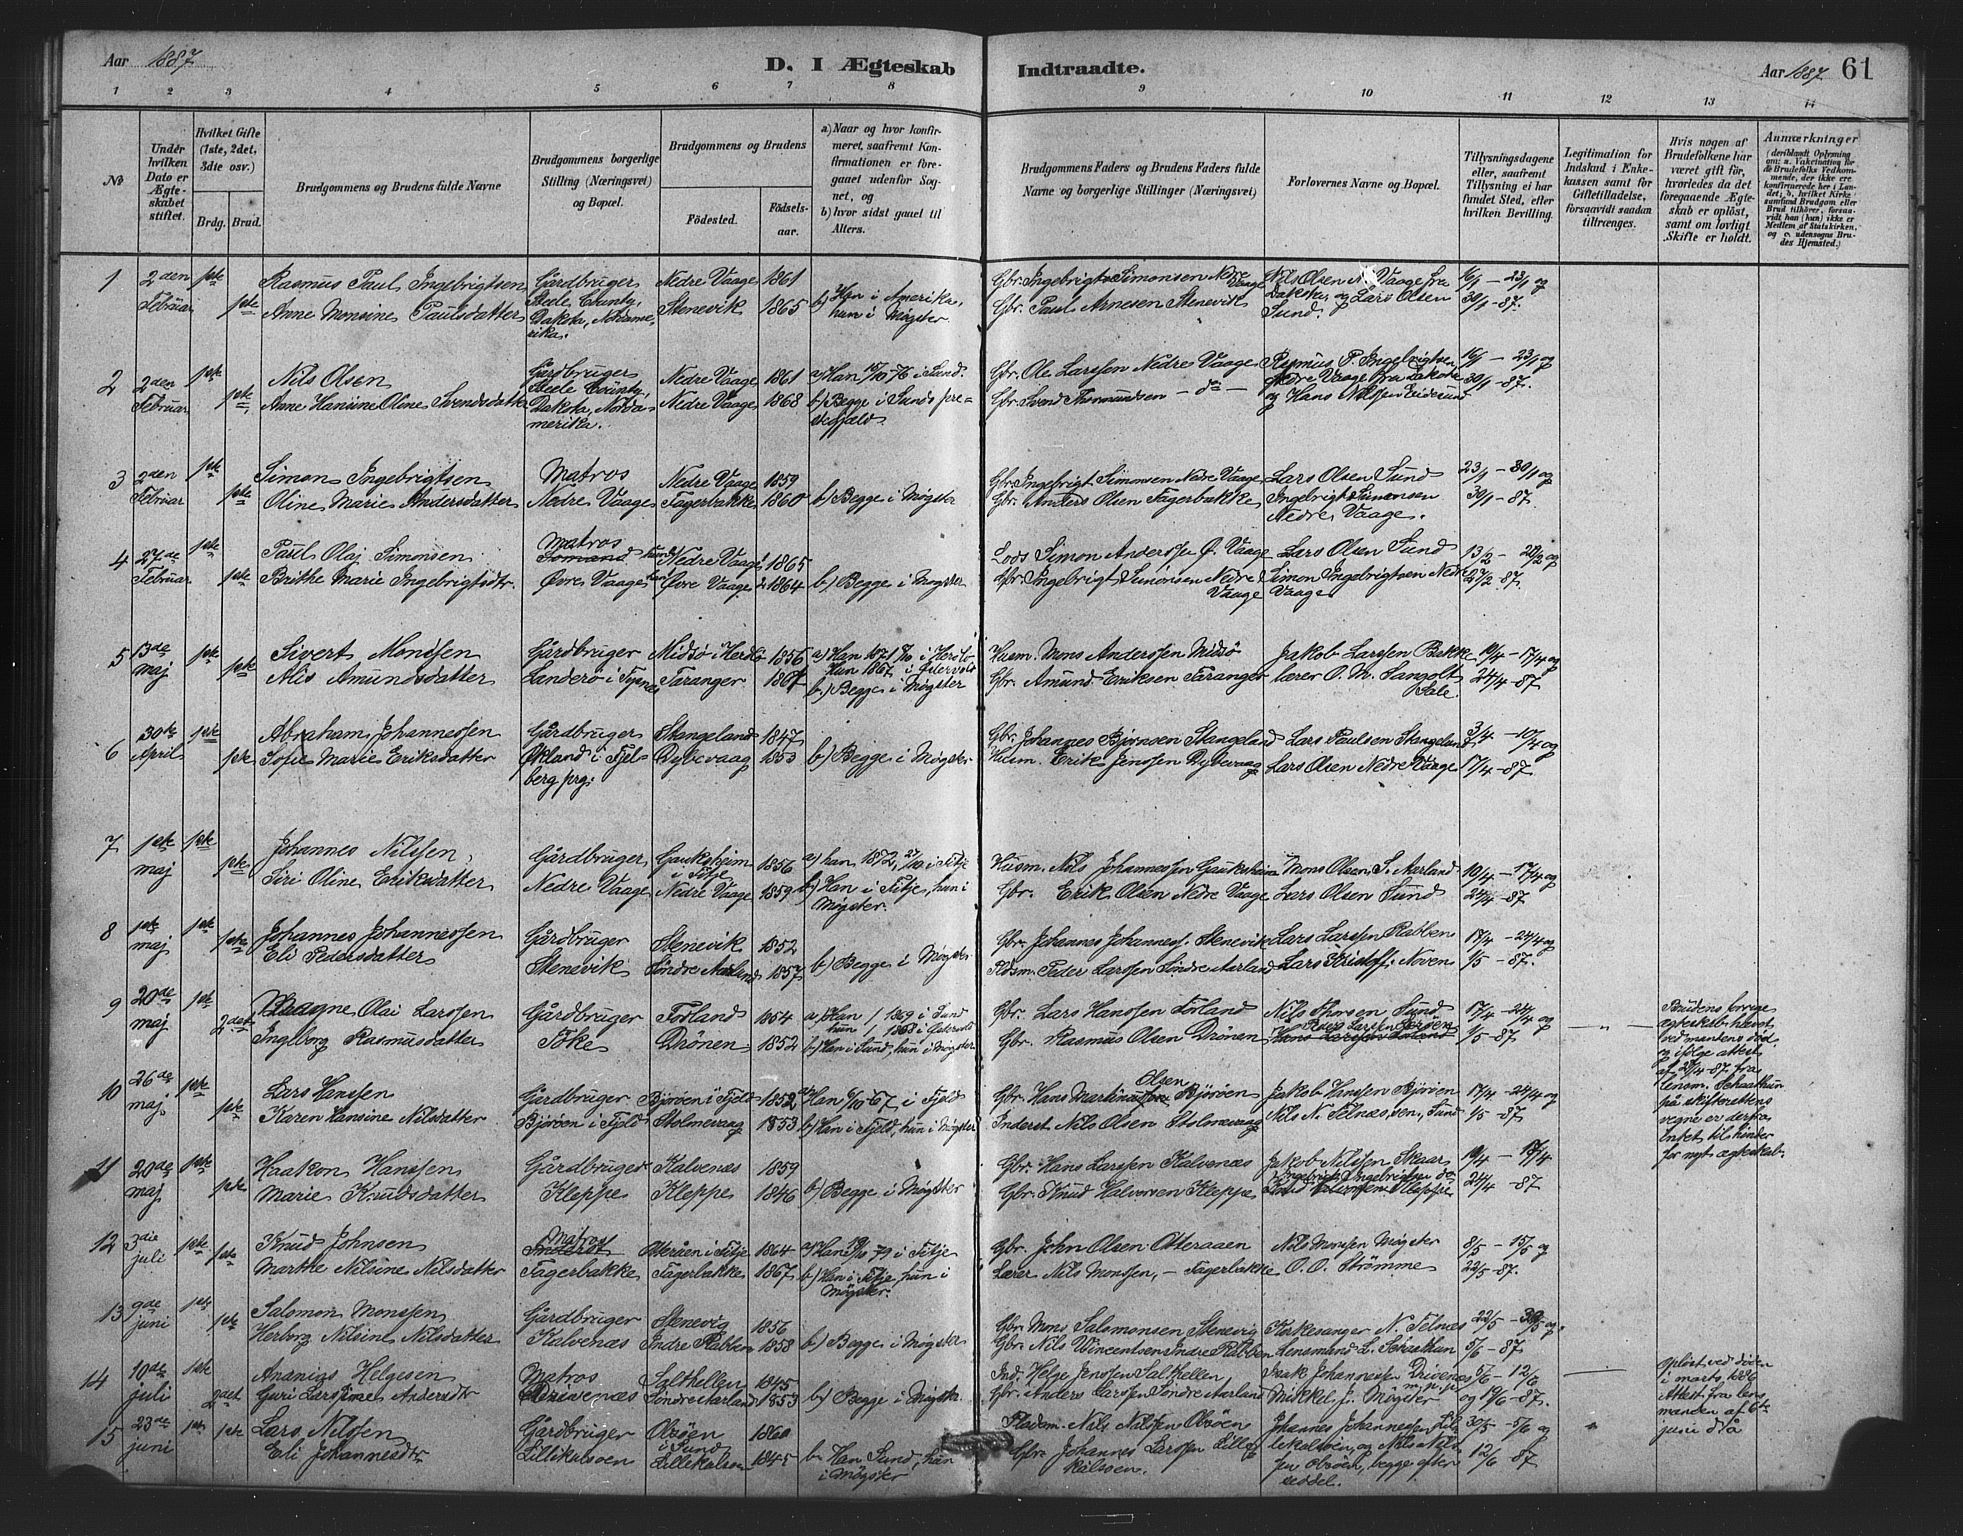 Aar 1887
D. I Ægteskab Indtraadte.
Aar 1887 61
1 2 3 4 5 6 7 8 9 10 11 12 13 14
No
Under hvilken Dato er Ægteskabet stiftet.
Hvilket Gifte (1ste, 2det, 3die osv.)
Brdg. Brud.
Brudgommens og Brudens fulde Navne
Brudgommens borgerlige Stilling (Næringsvei) og Bopæl.
Brudgommens og Brudens
Fødested. Fødsels-aar.
a) Naar og hvor konfirmeret, saafremt Konfirmationen er foregaaet udenfor Sognet, og
b) hvor sidst gaaet til Alters.
Brudgommens Faders og Brudens Faders fulde Navne og borgerlige Stillinger (Næringsvei)
Forlovernes Navne og Bopæl.
Tillysningsdagene eller, saafremt Tillysning ei har fundet Sted, efter hvilken Bevilling.
Legitimation for Indskud i Enkekassen samt for Giftetilladelse, forsaavidt saadan tiltrænges.
Hvis nogen af Brudefolkene har været gift før, hvorledes da det foregaaende Ægteskab er opløst, samt om lovligt Skifte er holdt.
Anmærkninger
1 2den Februar 1ste 1ste
Rasmus Paul Ingebrigtsen
Anne Monsine Paulsdatter
Gårdbruger Steele County, Dakota, Nordamerika.
Nedre Vaage 1861
Stenevik 1865
b) Han i Amerika, hun i Møgster
Gbr. Ingebrigt Simonsen Nedre Vaage
Gbr. Paul Arnesen Stenevik
Nils Olsen N. Vaage fra Dakota, og Lars Olsen Sund.
16/1 – 23/1 og 30/1 –87.
2 2den Februar 1ste 1ste
Nils Olsen
Anne Hansine Oline Svendsdatter
Gårdbruger Steele County, Dakota, Nordamerika.
Nedre Vaage 1861
Nedre Vaage 1868
b) Begge i Sunds præstegjæld
Gbr. Ole Larssen Nedre Vaage
Gbr. Svend Thormundsen – do –
Rasmus P. Ingebrigtsen Nedre Vaage fra Dakota og Hans Nilssen Eidesund
16/1 – 23/1 og 30/1 –87.
3 2den Februar 1ste 1ste
Simon Ingebrigtsen
Oline Marie Andersdatter
Matros
Nedre Vaage
Nedre Vaage 1859
Fagerbakke 1860
b) Begge i Møgster
Gbr. Ingebrigt Simonsen Nedre Vaage
Gbr. Anders Olsen Fagerbakke
Lars Olsen Sund
Ingebrigt Simonsen Nedre Vaage.
23/1 – 30/1 og 30/1 –87.
4 27de Februar 1ste 1ste
Paul Olai Simonsen
Brithe Marie Ingebrigtsdtr.
Matros
Øvre Vaage
Nedre Vaage 1865
Øvre Vaage 1864
b) Begge i Møgster
Lods Simon Anderssen Ø. Vaage
Gbr. Ingebrigt Simonsen Nedre Vaage
Lars Olsen Sund
Simon Ingebrigtsen Nedre Vaage
13/2 – 20/2 og 27/2 –87.
5 13de maj 1ste 1ste
Sivert Monssen
Alis Amundsdatter
Gårdbruger
Midtsø i Herdlø 1856
Taranger 1867
b) Begge i Møgster
Husm. Mons Anderssen Midsø
Gbr. Amund Eriksen Taranger
Jakob Larssen Bakke
lærer O. M. Langolt Sale.
10/4 – 17/4 og 24/4 –87
6 30te April 1ste 1ste
Abraham Johannessen
Sofie Marie Eriksdatter
Gårdbruger
Økland i Fjelberg prg:
Stangeland 1847
Dybevaag 1853
b) Begge i Møgster
Gbr. Johannes Bjørnsen Stangeland
Husm. Erik Jenssen Dybevaag
Lars Paulsen Stangeland
Lars Olsen Nedre Vaage
3/4 – 10/4 og 17/4 –87.
7 1ste maj 1ste 1ste
Johannes Nilssen
Siri Oline Eriksdatter
Gårdbruger
Nedre Vaage
Gauksheim i Fitje 1856
Nedre Vaage 1859
a) han, 1872, 27/10 i Fitje
b) Han i Fitje, hun i Møgster.
Husm. Nils Johannessen Gauksheim
Gbr. Erik Olsen Nedre Vaage
Mons Olsen S. Aarland
Lars Olsen Sund
10/4 – 17/4 og 24/4 –87.
8 1ste maj 1ste 1ste
Johannes Johannessen
Eli Pedersdatter
Gårdbruger
Stenevik
Stenevik 1852
Søndre Aarland 1857
b) Begge i Møgster
Gbr. Johannes Johanness. Stenevik
Peder Larssen Søndre Aarland
Lars Larssen Rabben
Lars Kristoff. Noven
17/4 – 24/4 og 1/5 –87.
9 20de maj 1ste 2det
Magne Olai Larssen
Ingeborg Rasmusdatter
Gårdbruger
Toke
Forland 1864
Drönen 1852
b) Han i Sund, hun i Møgster
Gbr. Lars Hanssen Forland
Gbr. Rasmus Olsen Drönen
Nils Thorsen Sund
17/4 – 24/4 og 1/5 –87
Brudens forrige ægteskab hævet ved mandens død, og ifølge attest af 28/4 87 fra lensm. Sebasthun på skifterettens vegne er derfra Intet til hinder for nyt ægteskab.
10 26de maj 1ste 1ste
Lars Hanssen
Karen Hansine Nilsdatter
Gårdbruger
Bjørøen i Fjeld
Bjørøen i Fjeld 1852
Stolmevaag 1853
b) Han i Fjeld, hun i Møgster
Gbr. Hans Martin Olsen Bjørøen
Inderst. Nils Olsen Stolmevaag
Jakob Hanssen Bjørøen
Nils N. Telnæs, sen., Sund
17/4 – 24/4 og 1/5 –87
11 20de maj 1ste 1ste
Haakon Hanssen
Marie Knudsdatter
Gårdbruger
Kleppe
Kalvenæs 1859
Kleppe 1846
b) Begge i Møgster
Gbr. Hans Larssen Kalvenæs
Gbr. Knud Halvorsen Kleppe
Jakob Nilssen Skaar
10/4 – 17/4 24/4 –87
12 3die juli 1ste 1ste
Knud Johnsen
Marthe Nilsine Nilsdatter
Matros
Fagerbakke
Otterøen i Fitje 1864
Fagerbakke 1867
b) Han i Fitje, hun i Møgster.
Gbr. John Olsen Otteraaen
Lærer Nils Monssen, – Fagerbakke
Nils Monssen Møgster
O. O. Strømme
8/5 – 15/5 og 22/5 –87.
13 9de juni 1ste 1ste
Salomon Monssen
Herborg Nilsine Nilsdatter
Gårdbruger
Kalvenæs
Stenevig 1856
Indre Rabben 1858
b) Begge i Møgster
Gbr. Mons Salomonsen Stenevig
Gbr. Nils Vincentsen Indre Rabben
Kirkesanger N. Telnæs
Lensmand L. Sebasthun
22/5 – 30/5 og 5/6 –87
14 10de juli 1ste 2det
Ananias Helgesen
Guri Larssine Andersdtr
Matros
Drivenæs
Salthellen 1845
Søndre Aarland 1853
b) Begge i Møgster
Ind. Helge Jenssen Salthellen
Gbr. Anders Larssen Søndre Aarland
Isak Johannessen Drivenæs
Mikkel J. Møgster
5/6 – 12/6 og 19/6 –87.
opløst ved døden i marts 1886 Attest fra lensmanden af 6te juni då
15 23de juni 1ste 1ste
Lars Nilssen
Eli Johannesdtr
Gårdbruger
Lillikalsoen
Obsöen i Sund 1860
Lillekalsoen 1845
b. Han Sund, hun i Møgster
Nils Nilssen Obsöen
Gbr. Johannes Larssen Lillekalsoen.
Johannes Johannessen Lillekalsoen, og Nils Nilssen Obsöen, begge efter seddel.
30/5 – 5/6 og 12/6 –87